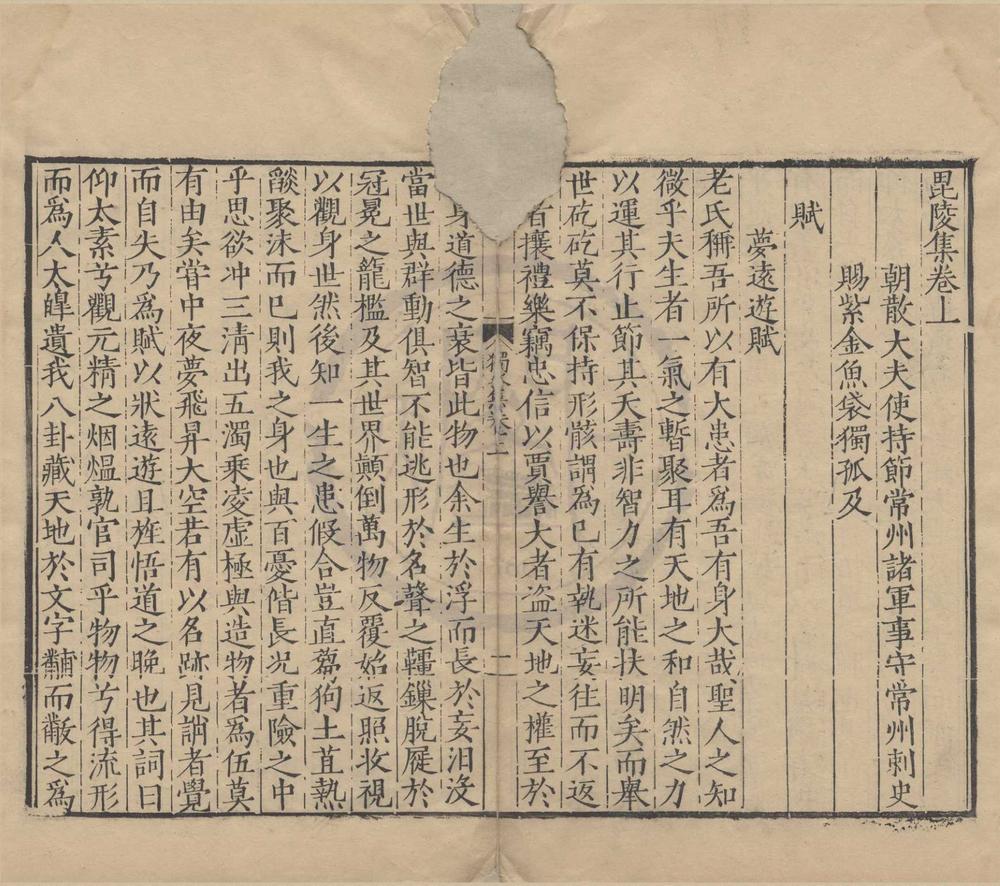 毘陵集卷上
朝散大夫使持節常州諸軍事守常州刺史
賜紫金魚袋獨孤及
賦
夢遠遊賦
老氏稱吾所以有大患者為吾有身大哉聖人之知
微乎夫生者一氣之暫聚耳有天地之和自然之力
以運其行止節其夭壽非智力之所能扶明矣而舉
世矻矻莫不保持形骸謂為已有執迷妄往而不返
者攘禮樂竊忠信以賈譽大者盗天地之權至於
身道德之衰皆此物也余生於浮而長於妄汩沒
當世與群動俱智不能逃形於名聲之韁鏁脫屣於
冠冕之籠檻及其世界顛倒萬物反覆始返照收視
以觀身世然後知一生之患假合豈直蒭狗土苴熱
燄聚沫而已則我之身也與百憂偕長况重險之中
乎思欲冲三清出五濁乘凌虛極與造物者為伍莫
有由矣嘗中夜夢飛昇大空若有以名跡見誚者覺
而自失乃為賦以狀遠遊且旌悟道之晚也其詞曰
仰太素兮觀元精之烟熅孰官司乎物物兮得流形
而為人太皥遺我八卦藏天地於文字黼而黻之為